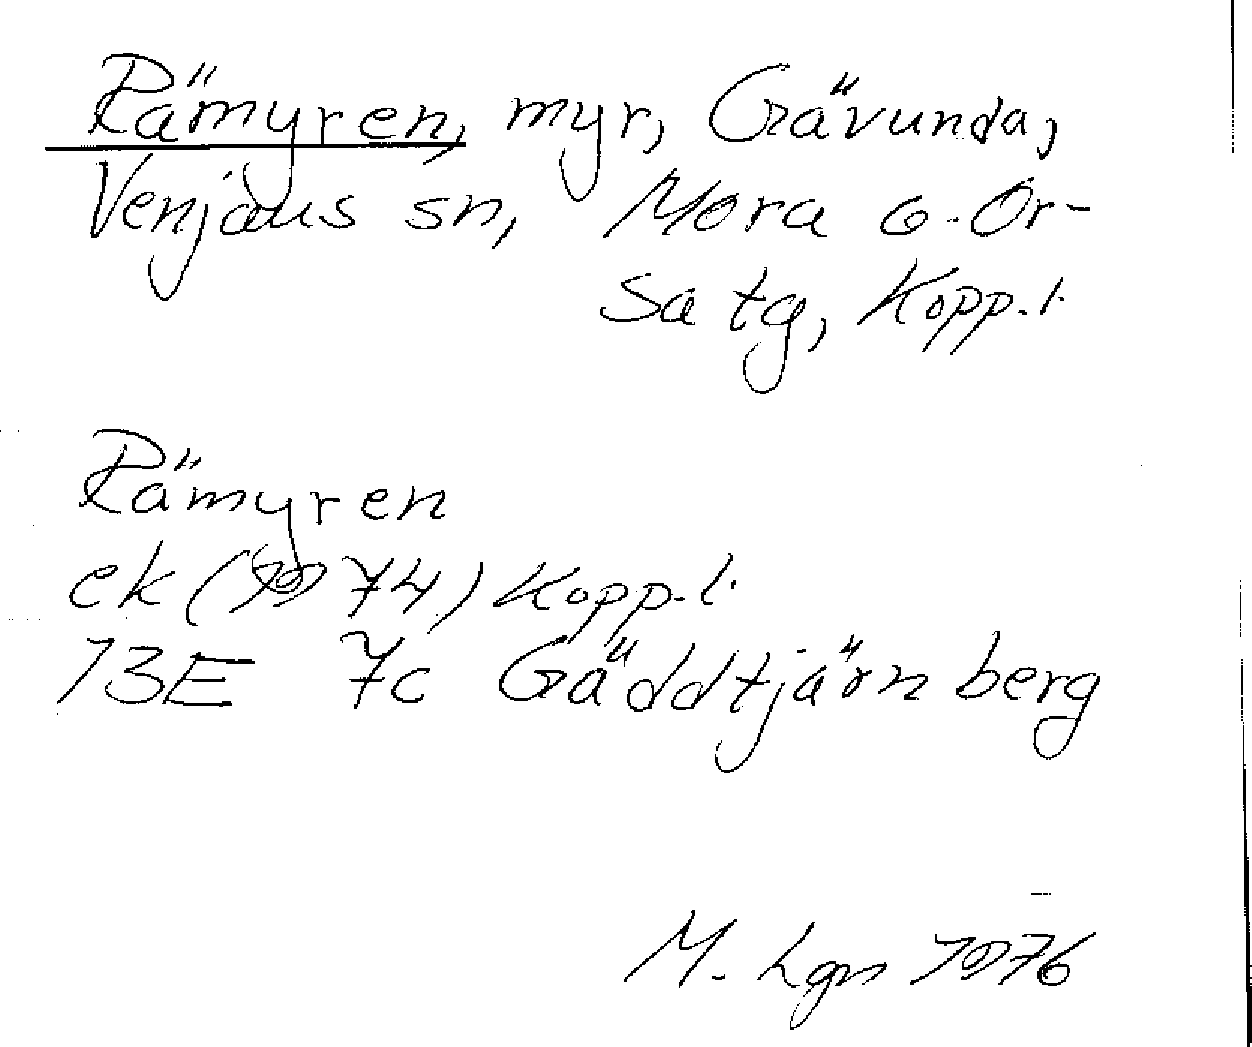 Rämyren, myr, Gävunda,
Venjans sn, Mora o. Or-
sa tg, Kopp. l.
Rämyren
ek (1974) Kopp. l.
13E 7c Gäddtjärnberg
M. Lgn 1976